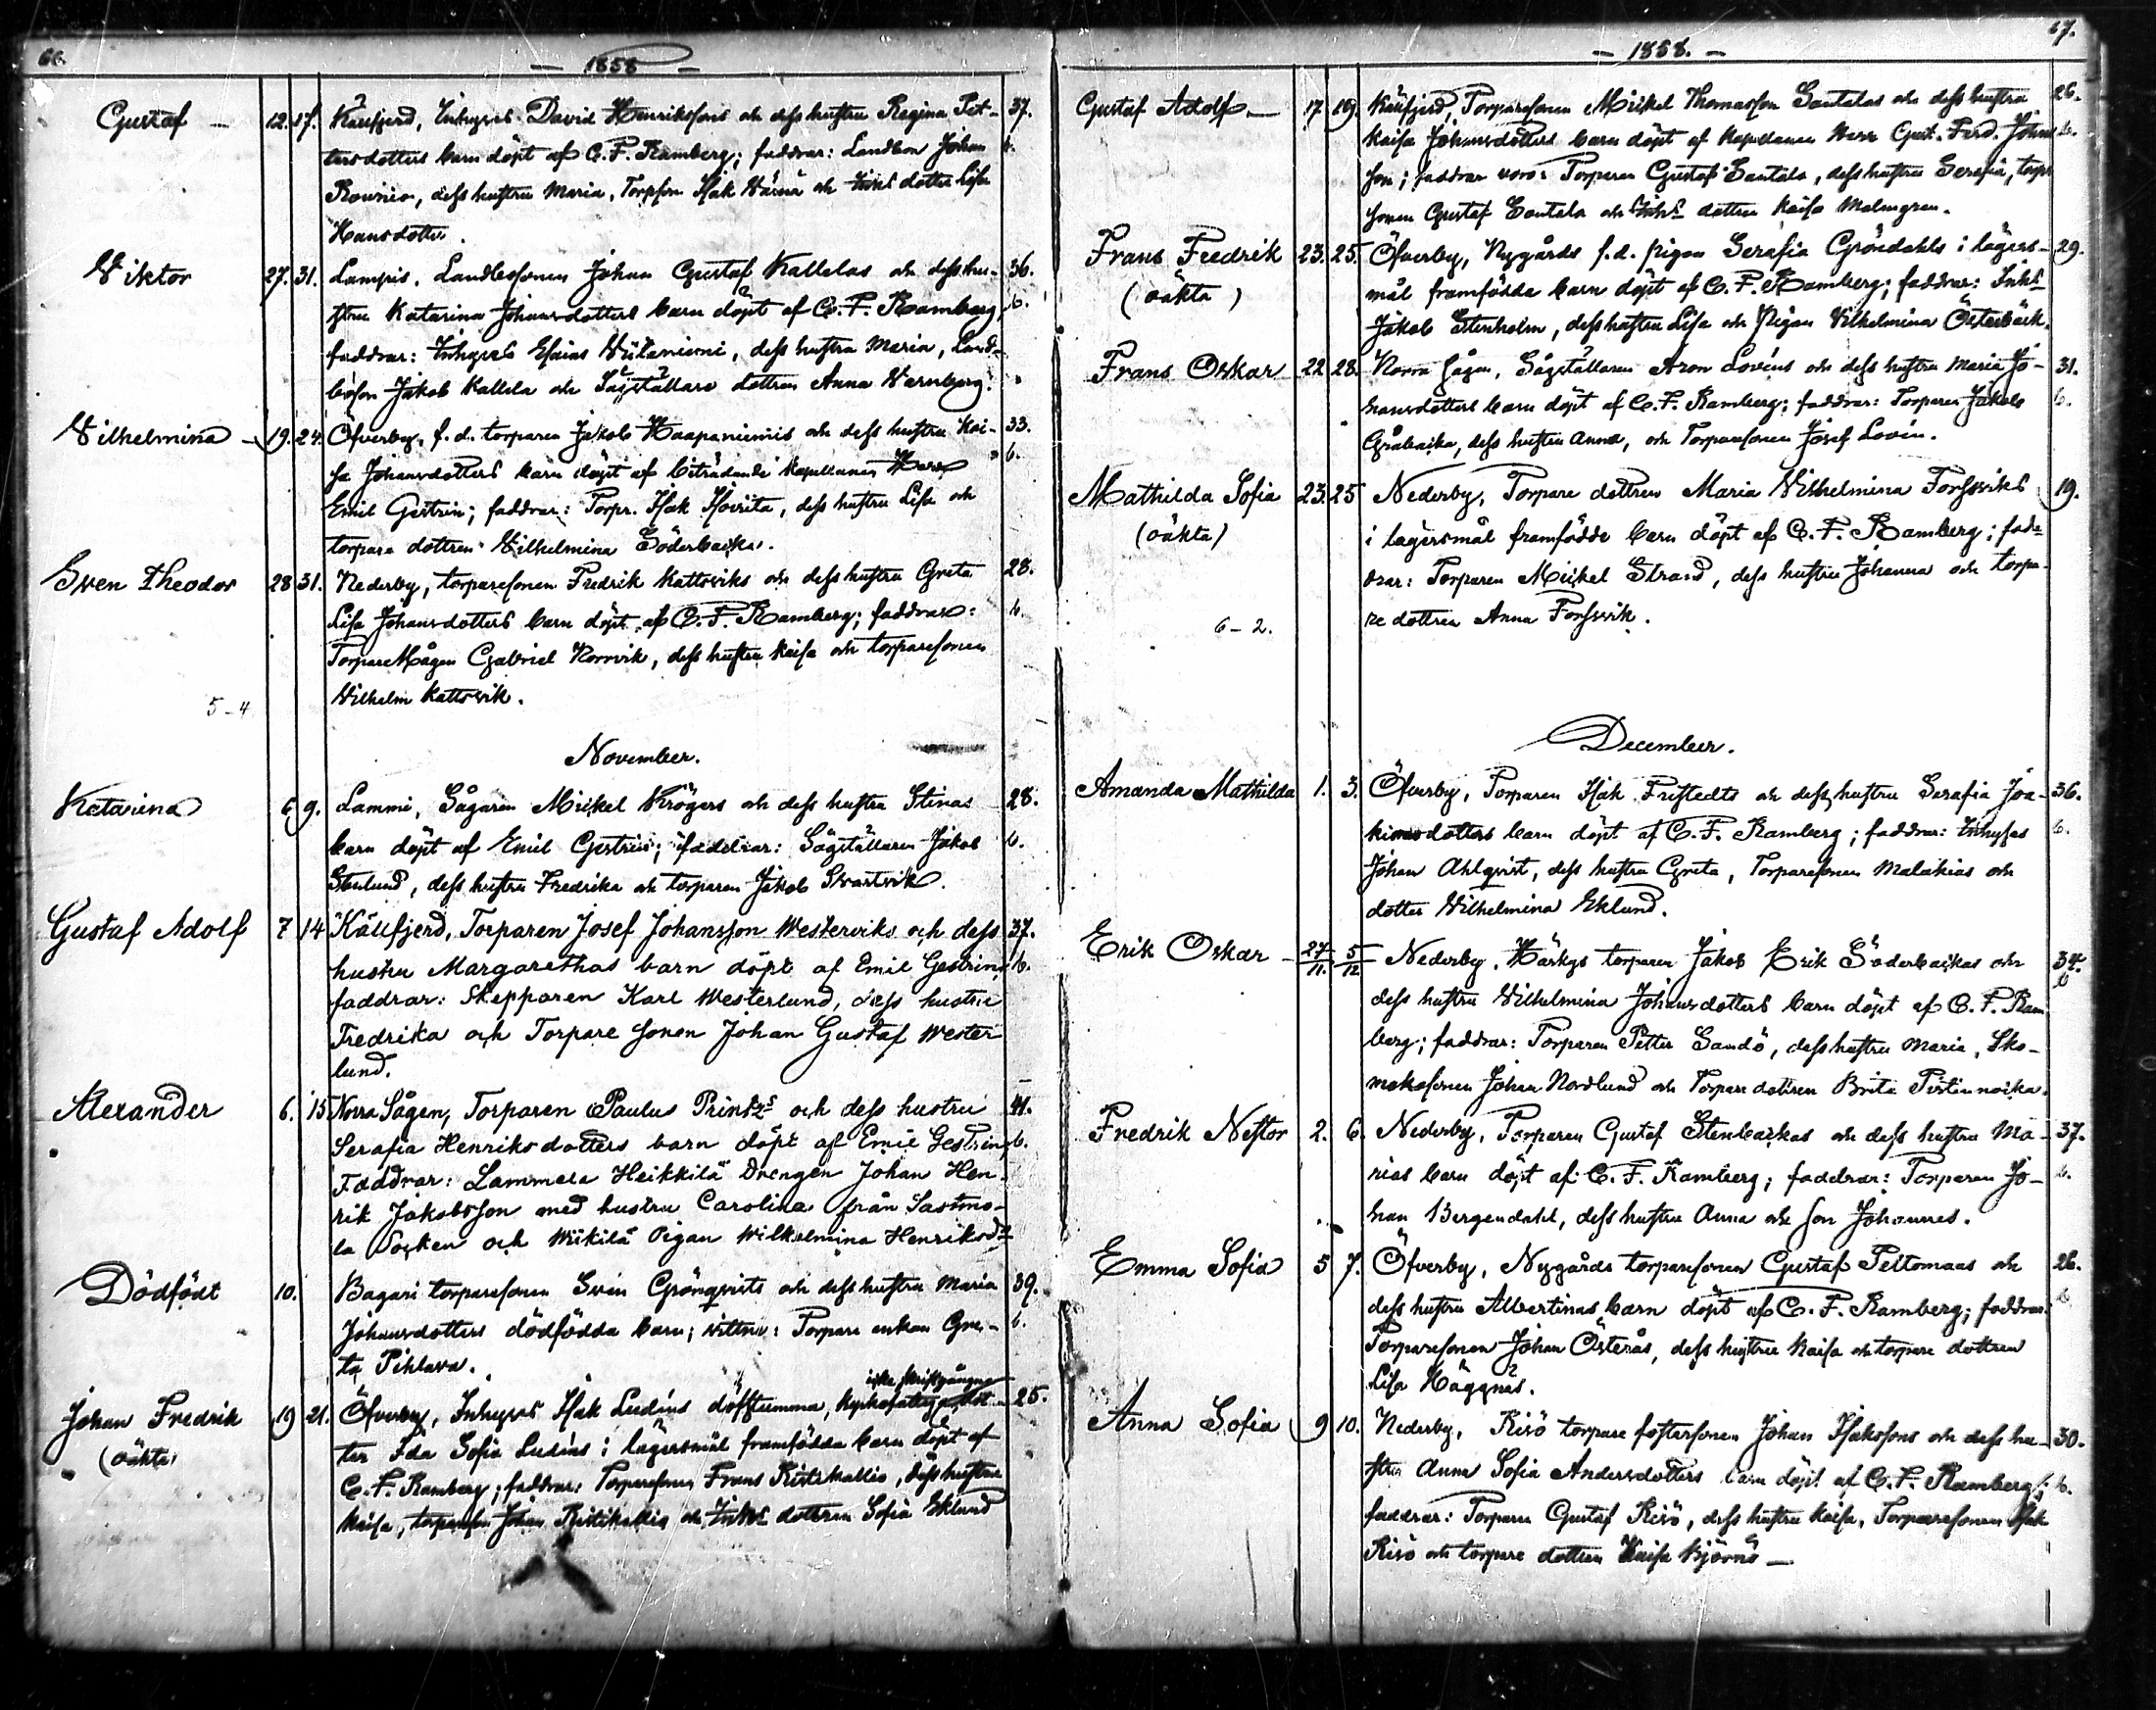 66.
— 1858 —
Gustaf — 12. 17. Käufjerd, Inhyses David Henrikssons och dess hustru Regina Pet- 37.
tersdotters barn döpt af C. F. Ramberg; faddrar: Landbon Johan b.
Rounio, dess hustru Maria, Torpson Isak Wärnä och Inhs dotter Lisa
Hansdotter.
Viktor 27. 31. Lampis, Landbosonen Johan Gustaf Kallelas och dess hu- 36.
stru Katarina Johansdotters barn döpt af C. F. Ramberg, b.
faddrar: Inhyses Esaias Viitaniemi, dess hustru Maria, Land-
boson Jakob Kallela och Sågställare dottren Anna Warnberg.
Vilhelmina — 19. 24. Öfverby, f. d. torparen Jakob Haapaniemis och dess hustru Kai- 33.
sa Johansdotters barn döpt af biträdande Kapellanen Herr b.
Emil Gestrin; faddrar: Torpr. Isak , dess hustru Lisa och
torpare dottren Vilhelmina Söderbacka.
Sven Theodor 28 31. Nederby, torparesonen Fredrik Kattsviks och dess hustru Greta 28.
Lisa Johansdotters barn döpt af C. F. Ramberg; faddrar: b.
Torpare Mågen Gabriel Norrvik, dess hustru Kaisa och torparesonen
Vilhelm Kattsvik.
5-4
November.
Katarina 6 9. Lammi, Sågaren Mickel Krögers och dess hustru Stinas 28.
barn döpt af Emil Gestrin; faddrar: Sågställaren Jakob b.
Stenlund, dess hustru Fredrika och torparen Jakob Svartvik.
Gustaf Adolf 7 14 Källfjerd, Torparen Josef Johansson Westerviks och dess 37.
hustru Margarethas barn döpt af Emil Gestrin, b.
faddrar: Skepparen Karl Westerlund, dess hustru
Fredrika och Torpare sonen Johan Gustaf Wester
lund.
Alexander 6. 15 Norra Sågen, Torparen Paulus Printzs och dess hustru 41.
Serafia Henriksdotters barn döpt af Emil Gestrin b.
Faddrar: Lammela Heikkilä Drengen Johan Hen-
rik Jakobsson med hustru Carolina från Sastmo-
la Socken och Wiikilä Pigan Wilhelmina Henriksdr
Dödfödt 10. Bagari torparesonen Sven Grönqvists och dess hustru Maria 39.
Johansdotters dödfödda barn; vittne: Torpare enkan Gre- b.
ta Pihlava.
icke skriftgångna
Johan Fredrik 19 21. Öfverby, Inhyses Isak Ludéns döfstumma, dot- 25.
(oäkta) ter Ida Sofia Ludéns i lägersmål framfödda barn döpt af
C. F. Ramberg; faddrar: Torparesonen Frans Ristikallio, dess hustru
Kaisa, torpareson Johan Ristikallio och Inhs dottren Sofia Eklund
67.
— 1858. —
Gustaf Adolf — 17 19. Käufjerd, Torparesonen Mickel Thomasson Santalas och dess hustru 26.
Kaisa Johansdotters barn döpt af Kapellanen Herr Gust. Ferd. Johns b.
son; faddrar voro: Torparen Gustaf Santala, dess hustru Serafia, torpr
sonen Gustaf Santala och Inhs dottren Kaisa Malmgren.
Frans Fredrik 23. 25. Öfverby, Nygårds f. d. pigan Serafia Gröndahls i lägers- 29.
(oäkta) mål framfödda barn döpt af C. F. Ramberg; faddrar: Inhs
Jakob Stenholm, dess hustru Lisa och Pigan Vilhelmina Österback.
Frans Oskar 22 28. Norra Sågen, Sågställaren Aron Lovéns och dess hustru Maria Jo- 31.
hansdotters barn döpt af C. F. Ramberg; faddrar: Torparen Jakob b.
Gråbacka, dess hustru Anna, och Torparesonen Josef Lovén.
Mathilda Sofia 23. 25 Nederby, Torpare dottren Maria Vilhelmina Forssviks 19.
(oäkta) i lägersmål framfödde barn döpt af C. F. Ramberg; fad-
drar: Torparen Mickel Strand, dess hustru Johanna och torpa-
re dottren Anna Forssvik.
6-2.
December.
Amanda Mathilda 1. 3. Öfverby, Torparen Isak Fristedts och dess hustru Serafia Joa- 36.
kimsdotters barn döpt af C. F. Ramberg; faddrar: Inhyses b.
Johan Ahlqvist, dess hustru Greta, Torparesonen Malakias och
dotter Vilhelmina Eklund.
Erik Oskar — 27/11. 5/12 Nederby, Härkys torparen Jakob Erik Söderbackas och 34.
dess hustru Vilhelmina Johansdotters barn döpt af C. F. Ram b
berg; faddrar: Torparen Petter Sandö, dess hustru Maria, Sko-
makesonen Johan Nordlund och Torpare dottren Brita .
Fredrik Nestor 2. 6. Nederby, Torparen Gustaf Stenbackas och dess hustru Ma- 37.
rias barn döpt af C. F. Ramberg; faddrar: Torparen Jo- b.
han Bergendahl, dess hustru Anna och son Johannes.
Emma Sofia 5 7. Öfverby, Nygårds torparesonen Gustaf Peltomaas och 26.
dess hustru Albertinas barn döpt af C. F. Ramberg; faddrar: b
Torparesonen Johan Österås, dess hustru Kaisa och torpare dottren
Lisa Häggnäs.
Anna Sofia 9 10. Nederby, Risö torpare fostersonen Johan Isakssons och dess hu- 30.
stru Anna Sofia Andersdotters barn döpt af C. F. Ramberg; b.
faddrar: Torparen Gustaf Risö, dess hustru Kaisa, Torparesonen Isak
Risö och torpare dottren Kaisa Björnö —